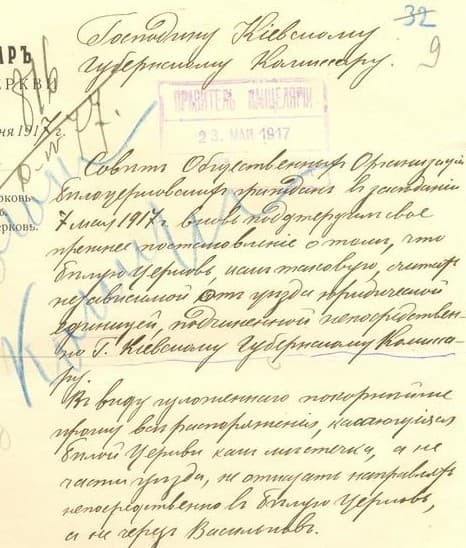 32
9
Господину Кіевскому
Губернскому Комиссару.
ИРЪ
ЕРКВИ
816
ня 1917 г.
ПРАВИТЕЛЬ КАНЦЕЛЯРІИ
23. МАЙ 1917
рковь.
б.
ерковь.
Советъ Общественных Организацій
Белоцерковских граждан в заседаніи
7 мая 1917 г. вновь подтвердил свое
прежнее постановленіе о том, что
Белую Церковь, как таковую, считать
независимой от уезда юридической
единицей, подчиненной непосредствен-
но Г. Кіевскому Губернскому Комисса-
ру.
В виду изложеннаго покорнейше
прошу все распоряженія, касающіяся
Белой Церкви как местечка, а не
части уезда, не отказать направлять
непосредственно в Белую Церковь,
а не через Васильков.